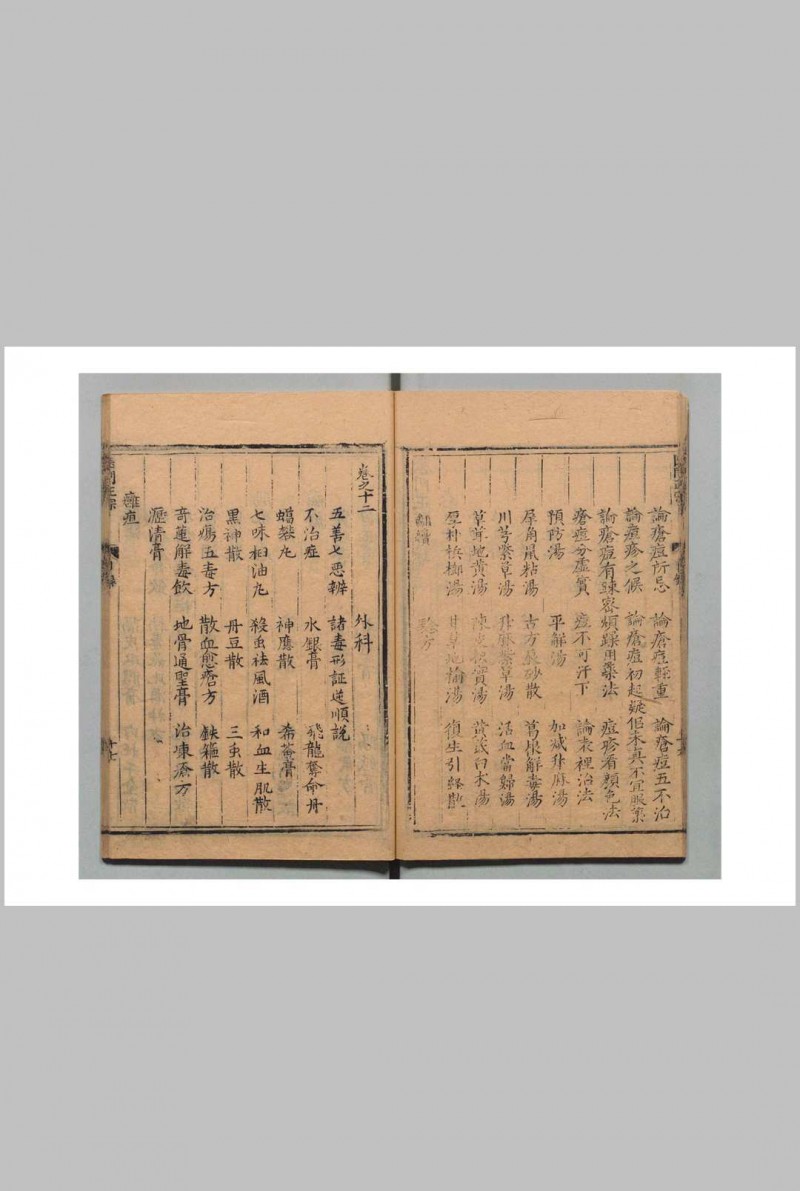 論瘡痘所忌　論瘡痘輕重　論瘡痘五不治
論痘疹之候　論瘡痘初起疑佀未真不宜服藥
論瘡痘有踈密　煩躁用藥法　痘疹看顏色法
瘡痘分虛實　痘不可汗下　論表裡治法
預防湯　平觧湯　加减升麻湯
犀角鼠粘湯　古方𦶜砂散　葛根解毒湯
川芎紫草湯　升麻紫草湯　活血當歸湯
草茸地黃湯　陳皮枳實湯　黃茋白朮湯
厚朴梹榔湯　甘草地榆湯　復生引經散
卷之十二
外科
五善七惡辨　諸毒形証逆順說
不治症　水銀膏　飛龍奪命丹
蟾蘇丸　神應散　
七味柏油丸　殺虫祛風酒　和血生肌散
黑神散　丹豆散　三虫散
治瘍五毒方　散血愈瘡方　鉄箍散
奇䕫解毒飲　地骨通聖膏　治凍瘡方
瀝清膏
癰疽